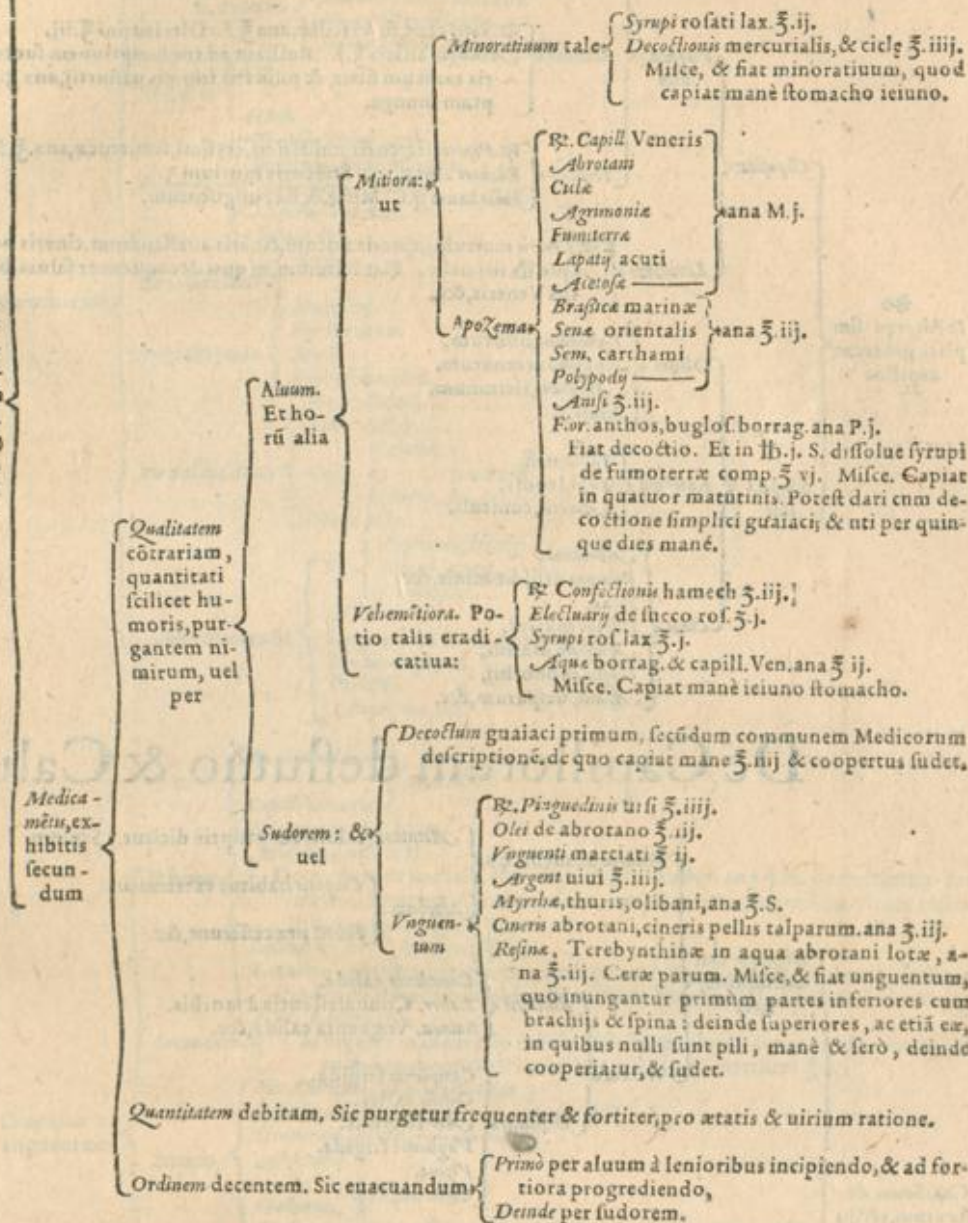 Medica-
mētis, ex-
hibitis
secun-
dum
Qualitatem
cōtrariam,
quantitati
scilicet hu-
moris, pur-
gantem ni-
mirum, uel
per
Aluum.
Et ho-
rū alia
Mitiora:
ut
Minoratiuum tale
Syrupi rosati lax. ℥.ij.
Decoctionis mercurialis, & ciclę ℥.iiij.
Misce, & fiat minoratiuum, quod
capiat manè stomacho ieiuno.
Apozema
℞. Capill Veneris
Abrotani
Agrimoniæ
Fumiterræ
Lapatij acuti
Acetosæ
ana M.j.
Braßicæ marinæ
Senæ orientalis
Sem. carthami
Polypodij
ana ℥.iij.
Anisi ʒ.iij.
Flor. anthos, buglos. borrag. ana P.j.
Fiat decoctio. Et in ℔.j. S. dissolue syrupi
de fumoterræ comp. ℥ vj. Misce. Capiat
in quatuor matutinis. Potest dari cum de-
coctione simplici guaiaci; & uti per quin-
que dies manè.
Vehemētiora. Po-
tio talis eradi-
catiua:
℞ Confectionis hamech ʒ.iij.
Electuarij de succo ros. ʒ.j.
Syrupi ros. lax ℥.j.
Aquæ borrag. & capill. Ven. ana ℥ ij.
Misce. Capiat manè ieiuno stomacho.
Sudorem: &
uel
Decoctum guaiaci primum, secūdum communem Medicorum
descriptionē, de quo capiat mane ℥.iiij & coopertus sudet.
Vnguen-
tum
℞. Pinguedinis ursi ℥.iiij.
Olei de abrotano ℥.iij.
Vnguenti marciati ℥ ij.
Argent uiui ℥.iiij.
Myrrhæ, thuris, olibani, ana ℥.S.
Cineris abrotani, cineris pellis talparum. ana ʒ.iij.
Resinæ, Terebynthinæ in aqua abrotani lotæ, a-
na ℥.iij. Ceræ parum. Misce, & fiat unguentum,
quo inungantur primùm partes inferiores cum
brachijs & spina: deinde superiores, ac etiā eæ,
in quibus nulli sunt pili, manè & serò, deinde
cooperiatur, & sudet.
Quantitatem debitam. Sic purgetur frequenter & fortiter, pro ætatis & uirium ratione.
Ordinem decentem. Sic euacuandum
Primò per aluum à lenioribus incipiendo, & ad for-
tiora progrediendo,
Deinde per sudorem.